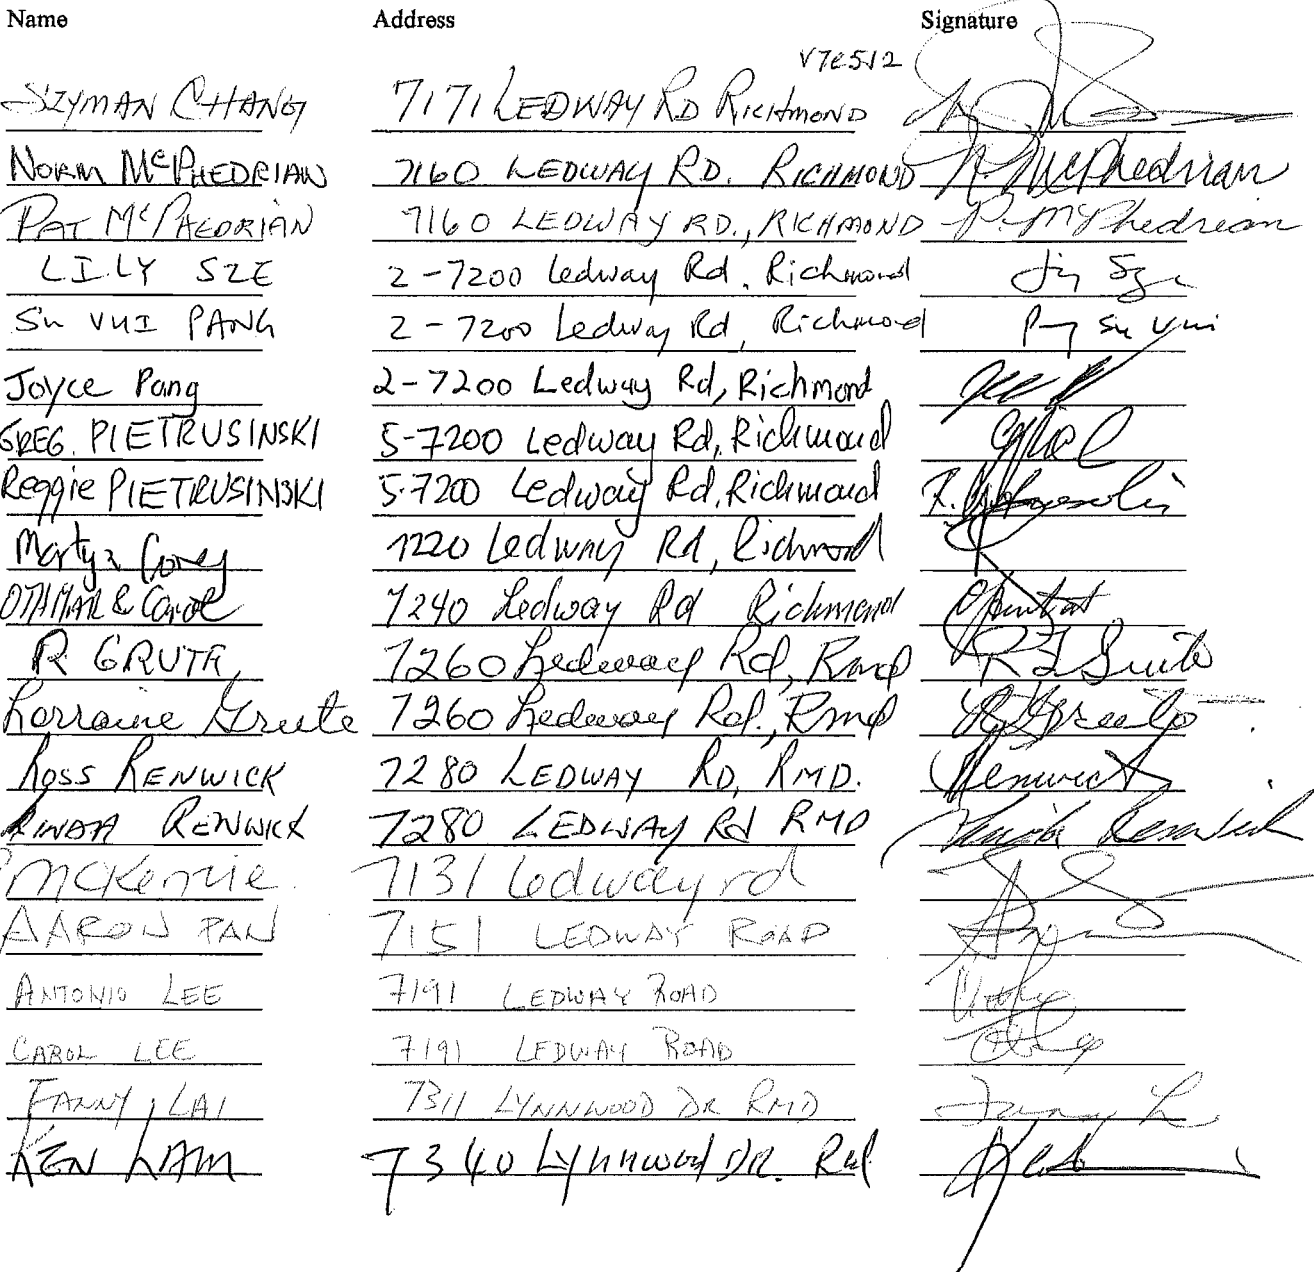 Name Address Signature
V7C5J2
SZYMAN CHANG 7171 LEDWAY RD RICHMOND
NORM McPHEDRIAN 7160 LEDWAY RD. RICHMOND N McPhedrian
PAT McPHEDRIAN 7160 LEDWAY RD., RICHMOND P. McPhedrian
LILY SZE 2-7200 Ledway Rd. Richmond
SU VUI PANG 2-7200 Ledway Rd, Richmond Su Vui
Joyce Pang 2-7200 Ledway Rd, Richmond
GREG. PIETRUSINSKI 5-7200 Ledway Rd, Richmond
Reggie PIETRUSINSKI 5-7200 Ledway Rd, Richmond
7220 Ledway Rd, Richmond
OTHMAR & Carol 7240 Ledway Rd Richmond
R GRUTE 7260 Ledway Rd, Rmd
Lorraine Grute 7260 Ledway Rd., Rmd
Ross RENWICK 7280 LEDWAY RD, RMD. Renwick
LINDA RENWICK 7280 LEDWAY Rd RMD Linda Renwick
McKenzie. 7131 Ledway rd
AARON PAN 7151 LEDWAY ROAD
ANTONIO LEE 7191 LEDWAY ROAD
CAROL LEE 7191 LEDWAY ROAD
FANNY LAI 7311 LYNNWOOD DR RMD Fanny L
KEN LAM 7340 Lynnwood DR. Rd